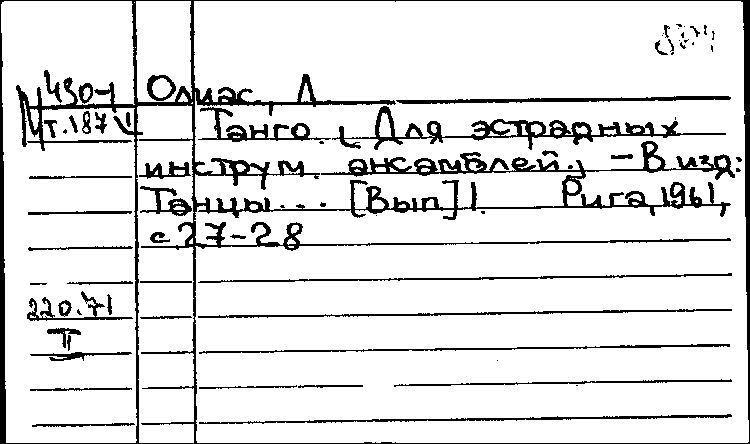 Олиас, Л
Танго. [Для эстрадных
инструм. ансамблей.] - В изд:
Танцы... [Вып] 1. Рига, 1961,
с 27-28
М 430-1
т. 187 VI
220.71
II